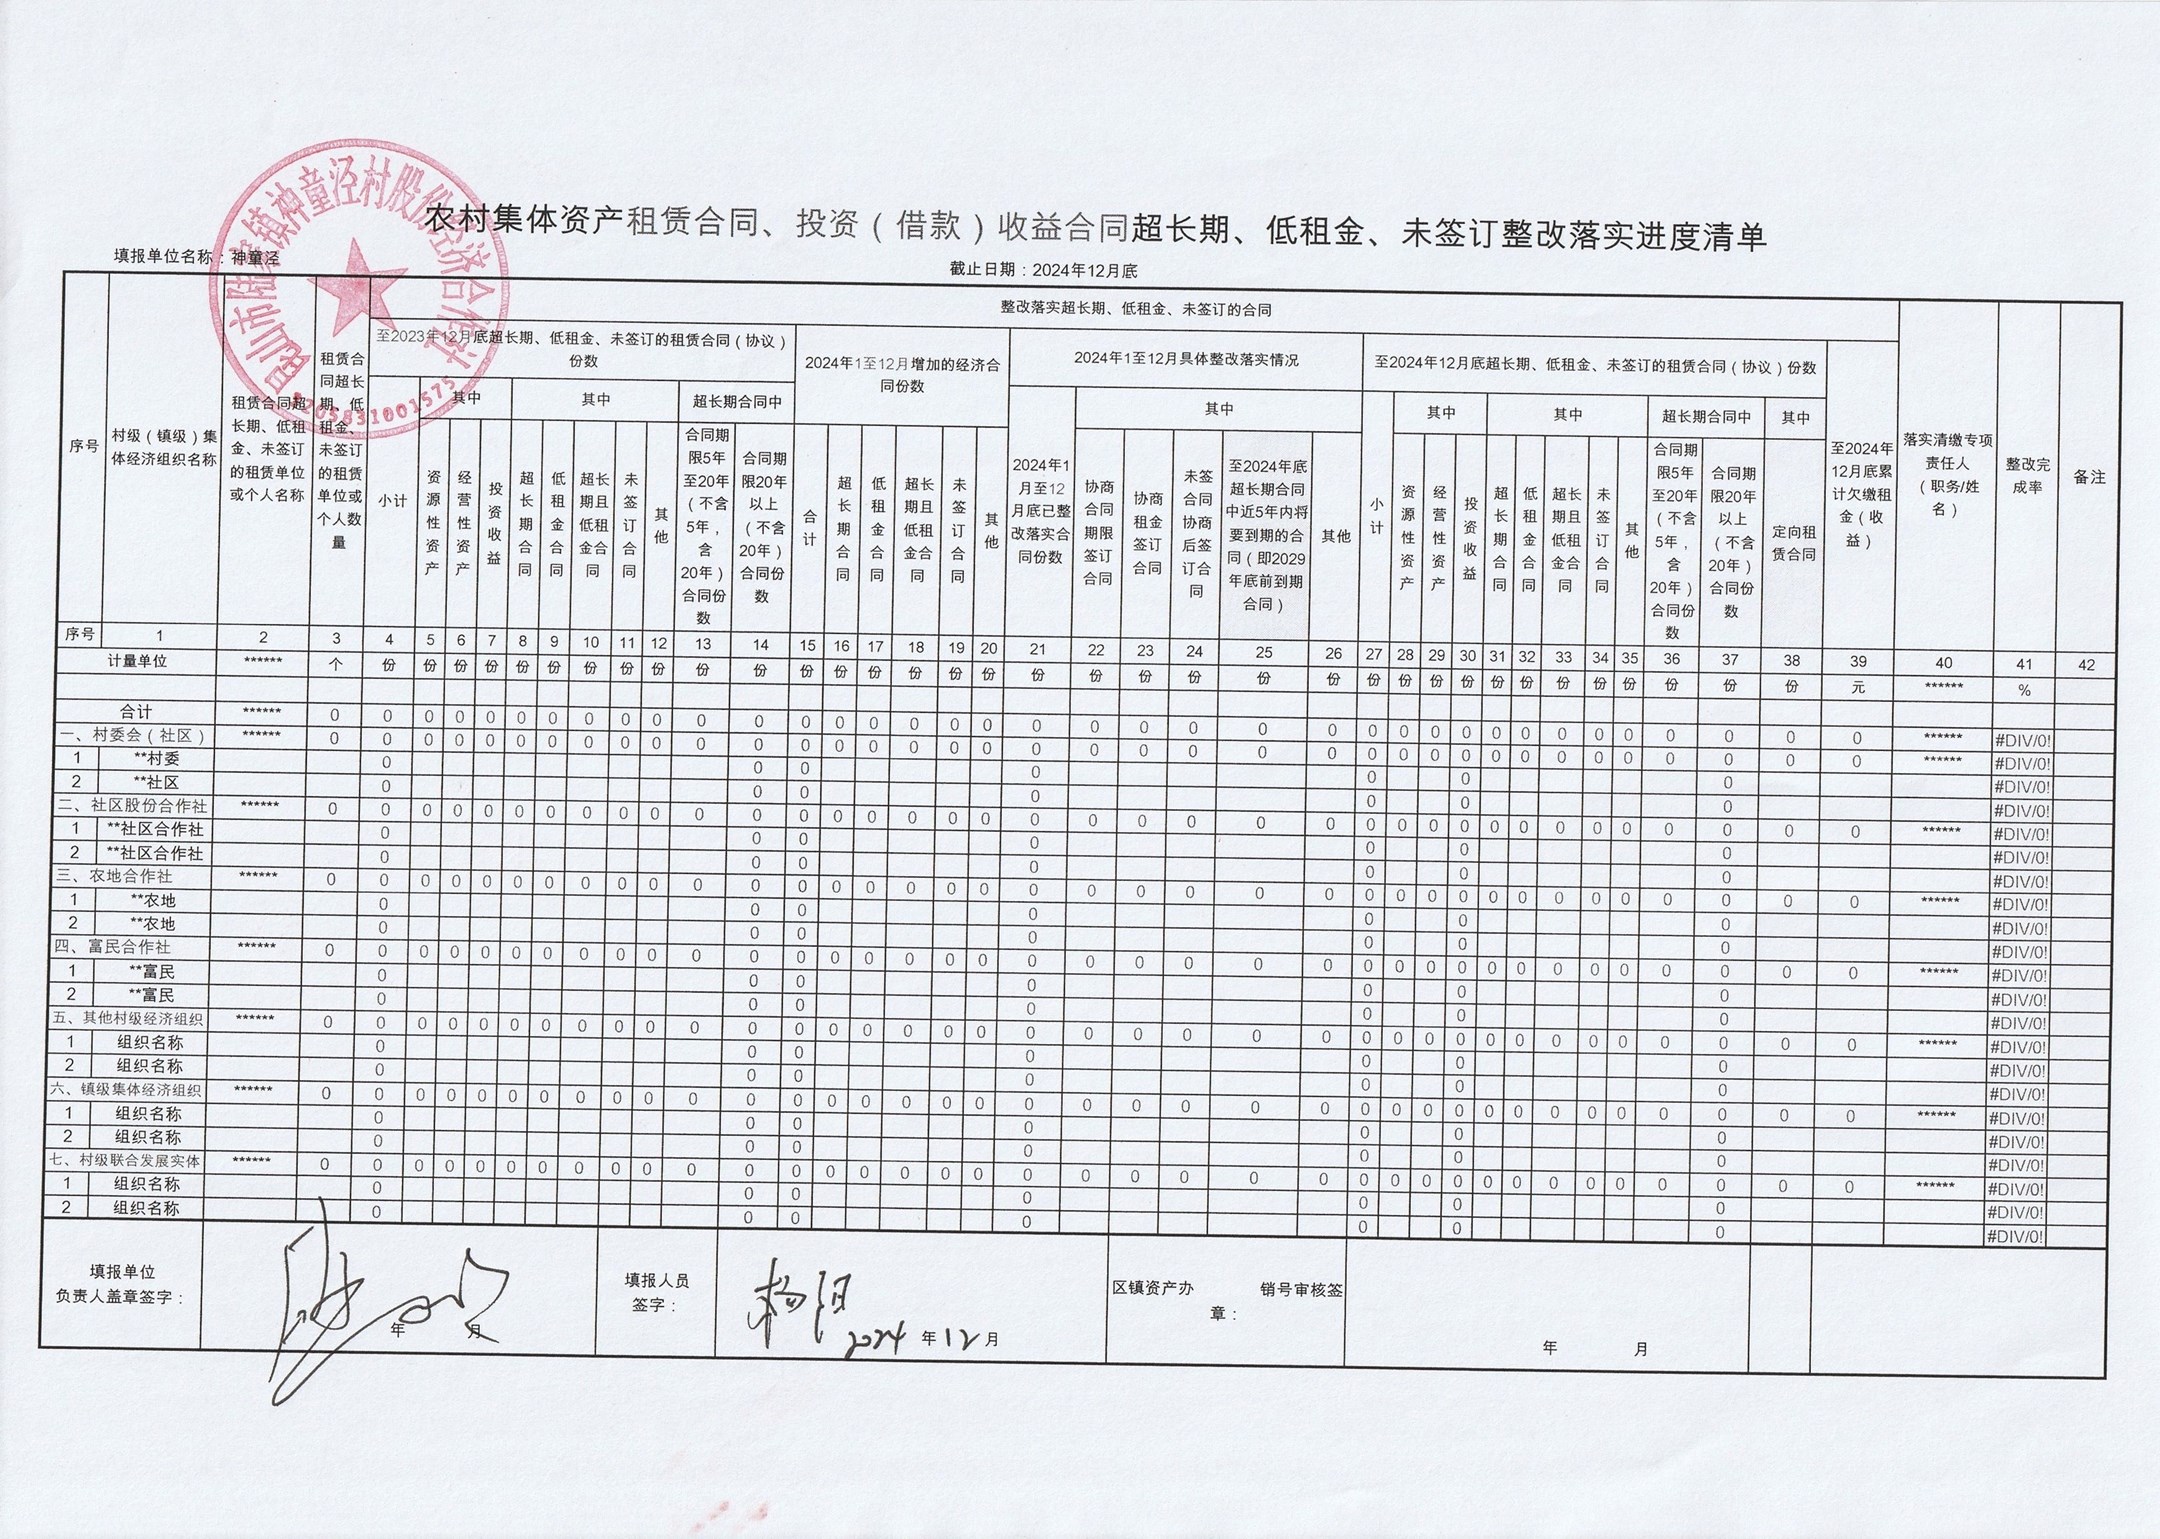 昆山市陆家镇神童泾村股份经济合作社
3205831001575
农村集体资产租赁合同、投资（借款）收益合同超长期、低租金、未签订整改落实进度清单
填报单位名称：神童泾
截止日期：2024年12月底
序号 村级（镇级）集体经济组织名称 租赁合同超长期、低租金、未签订的租赁单位或个人名称 租赁合同超长期、低租金、未签订的租赁单位或个人数量 整改落实超长期、低租金、未签订的合同 落实清缴专项责任人（职务/姓名） 整改完成率 备注
至2023年12月底超长期、低租金、未签订的租赁合同（协议）份数 2024年1至12月增加的经济合同份数 2024年1至12月具体整改落实情况 至2024年12月底超长期、低租金、未签订的租赁合同（协议）份数 至2024年12月底累计欠缴租金（收益）
小计 其中 其中 超长期合同中 合计 超长期合同 低租金合同 超长期且低租金合同 未签订合同 其他 2024年1月至12月底已整改落实合同份数 其中 小计 其中 其中 超长期合同中 其中
资源性资产 经营性资产 投资收益 超长期合同 低租金合同 超长期且低租金合同 未签订合同 其他 合同期限5年至20年（不含5年，含20年）合同份数 合同期限20年以上（不含20年）合同份数 协商合同期限签订合同 协商租金签订合同 未签合同协商后签订合同 至2024年底超长期合同中近5年内将要到期的合同（即2029年底前到期合同） 其他 资源性资产 经营性资产 投资收益 超长期合同 低租金合同 超长期且低租金合同 未签订合同 其他 合同期限5年至20年（不含5年，含20年）合同份数 合同期限20年以上（不含20年）合同份数 定向租赁合同
序号 1 2 3 4 5 6 7 8 9 10 11 12 13 14 15 16 17 18 19 20 21 22 23 24 25 26 27 28 29 30 31 32 33 34 35 36 37 38 39 40 41 42
计量单位 ****** 个 份 份 份 份 份 份 份 份 份 份 份 份 份 份 份 份 份 份 份 份 份 份 份 份 份 份 份 份 份 份 份 份 份 份 份 元 ****** %
合计 ****** 0 0 0 0 0 0 0 0 0 0 0 0 0 0 0 0 0 0 0 0 0 0 0 0 0 0 0 0 0 0 0 0 0 0 0 0 0 ****** #DIV/0!
一、村委会（社区） ****** 0 0 0 0 0 0 0 0 0 0 0 0 0 0 0 0 0 0 0 0 0 0 0 0 0 0 0 0 0 0 0 0 0 0 0 0 0 ****** #DIV/0!
1 **村委 0 0 0 0 0 0 0 #DIV/0!
2 **社区 0 0 0 0 0 0 0 #DIV/0!
二、社区股份合作社 ****** 0 0 0 0 0 0 0 0 0 0 0 0 0 0 0 0 0 0 0 0 0 0 0 0 0 0 0 0 0 0 0 0 0 0 0 0 0 ****** #DIV/0!
1 **社区合作社 0 0 0 0 0 0 0 #DIV/0!
2 **社区合作社 0 0 0 0 0 0 0 #DIV/0!
三、农地合作社 ****** 0 0 0 0 0 0 0 0 0 0 0 0 0 0 0 0 0 0 0 0 0 0 0 0 0 0 0 0 0 0 0 0 0 0 0 0 0 ****** #DIV/0!
1 **农地 0 0 0 0 0 0 0 #DIV/0!
2 **农地 0 0 0 0 0 0 0 #DIV/0!
四、富民合作社 ****** 0 0 0 0 0 0 0 0 0 0 0 0 0 0 0 0 0 0 0 0 0 0 0 0 0 0 0 0 0 0 0 0 0 0 0 0 0 ****** #DIV/0!
1 **富民 0 0 0 0 0 0 0 #DIV/0!
2 **富民 0 0 0 0 0 0 0 #DIV/0!
五、其他村级经济组织 ****** 0 0 0 0 0 0 0 0 0 0 0 0 0 0 0 0 0 0 0 0 0 0 0 0 0 0 0 0 0 0 0 0 0 0 0 0 0 ****** #DIV/0!
1 组织名称 0 0 0 0 0 0 0 #DIV/0!
2 组织名称 0 0 0 0 0 0 0 #DIV/0!
六、镇级集体经济组织 ****** 0 0 0 0 0 0 0 0 0 0 0 0 0 0 0 0 0 0 0 0 0 0 0 0 0 0 0 0 0 0 0 0 0 0 0 0 0 ****** #DIV/0!
1 组织名称 0 0 0 0 0 0 0 #DIV/0!
2 组织名称 0 0 0 0 0 0 0 #DIV/0!
七、村级联合发展实体 ****** 0 0 0 0 0 0 0 0 0 0 0 0 0 0 0 0 0 0 0 0 0 0 0 0 0 0 0 0 0 0 0 0 0 0 0 0 0 ****** #DIV/0!
1 组织名称 0 0 0 0 0 0 0 #DIV/0!
2 组织名称 0 0 0 0 0 0 0 #DIV/0!
填报单位
负责人盖章签字：
年 月
填报人员
签字：
杨
2024 年 12 月
区镇资产办 销号审核签
章：
年 月